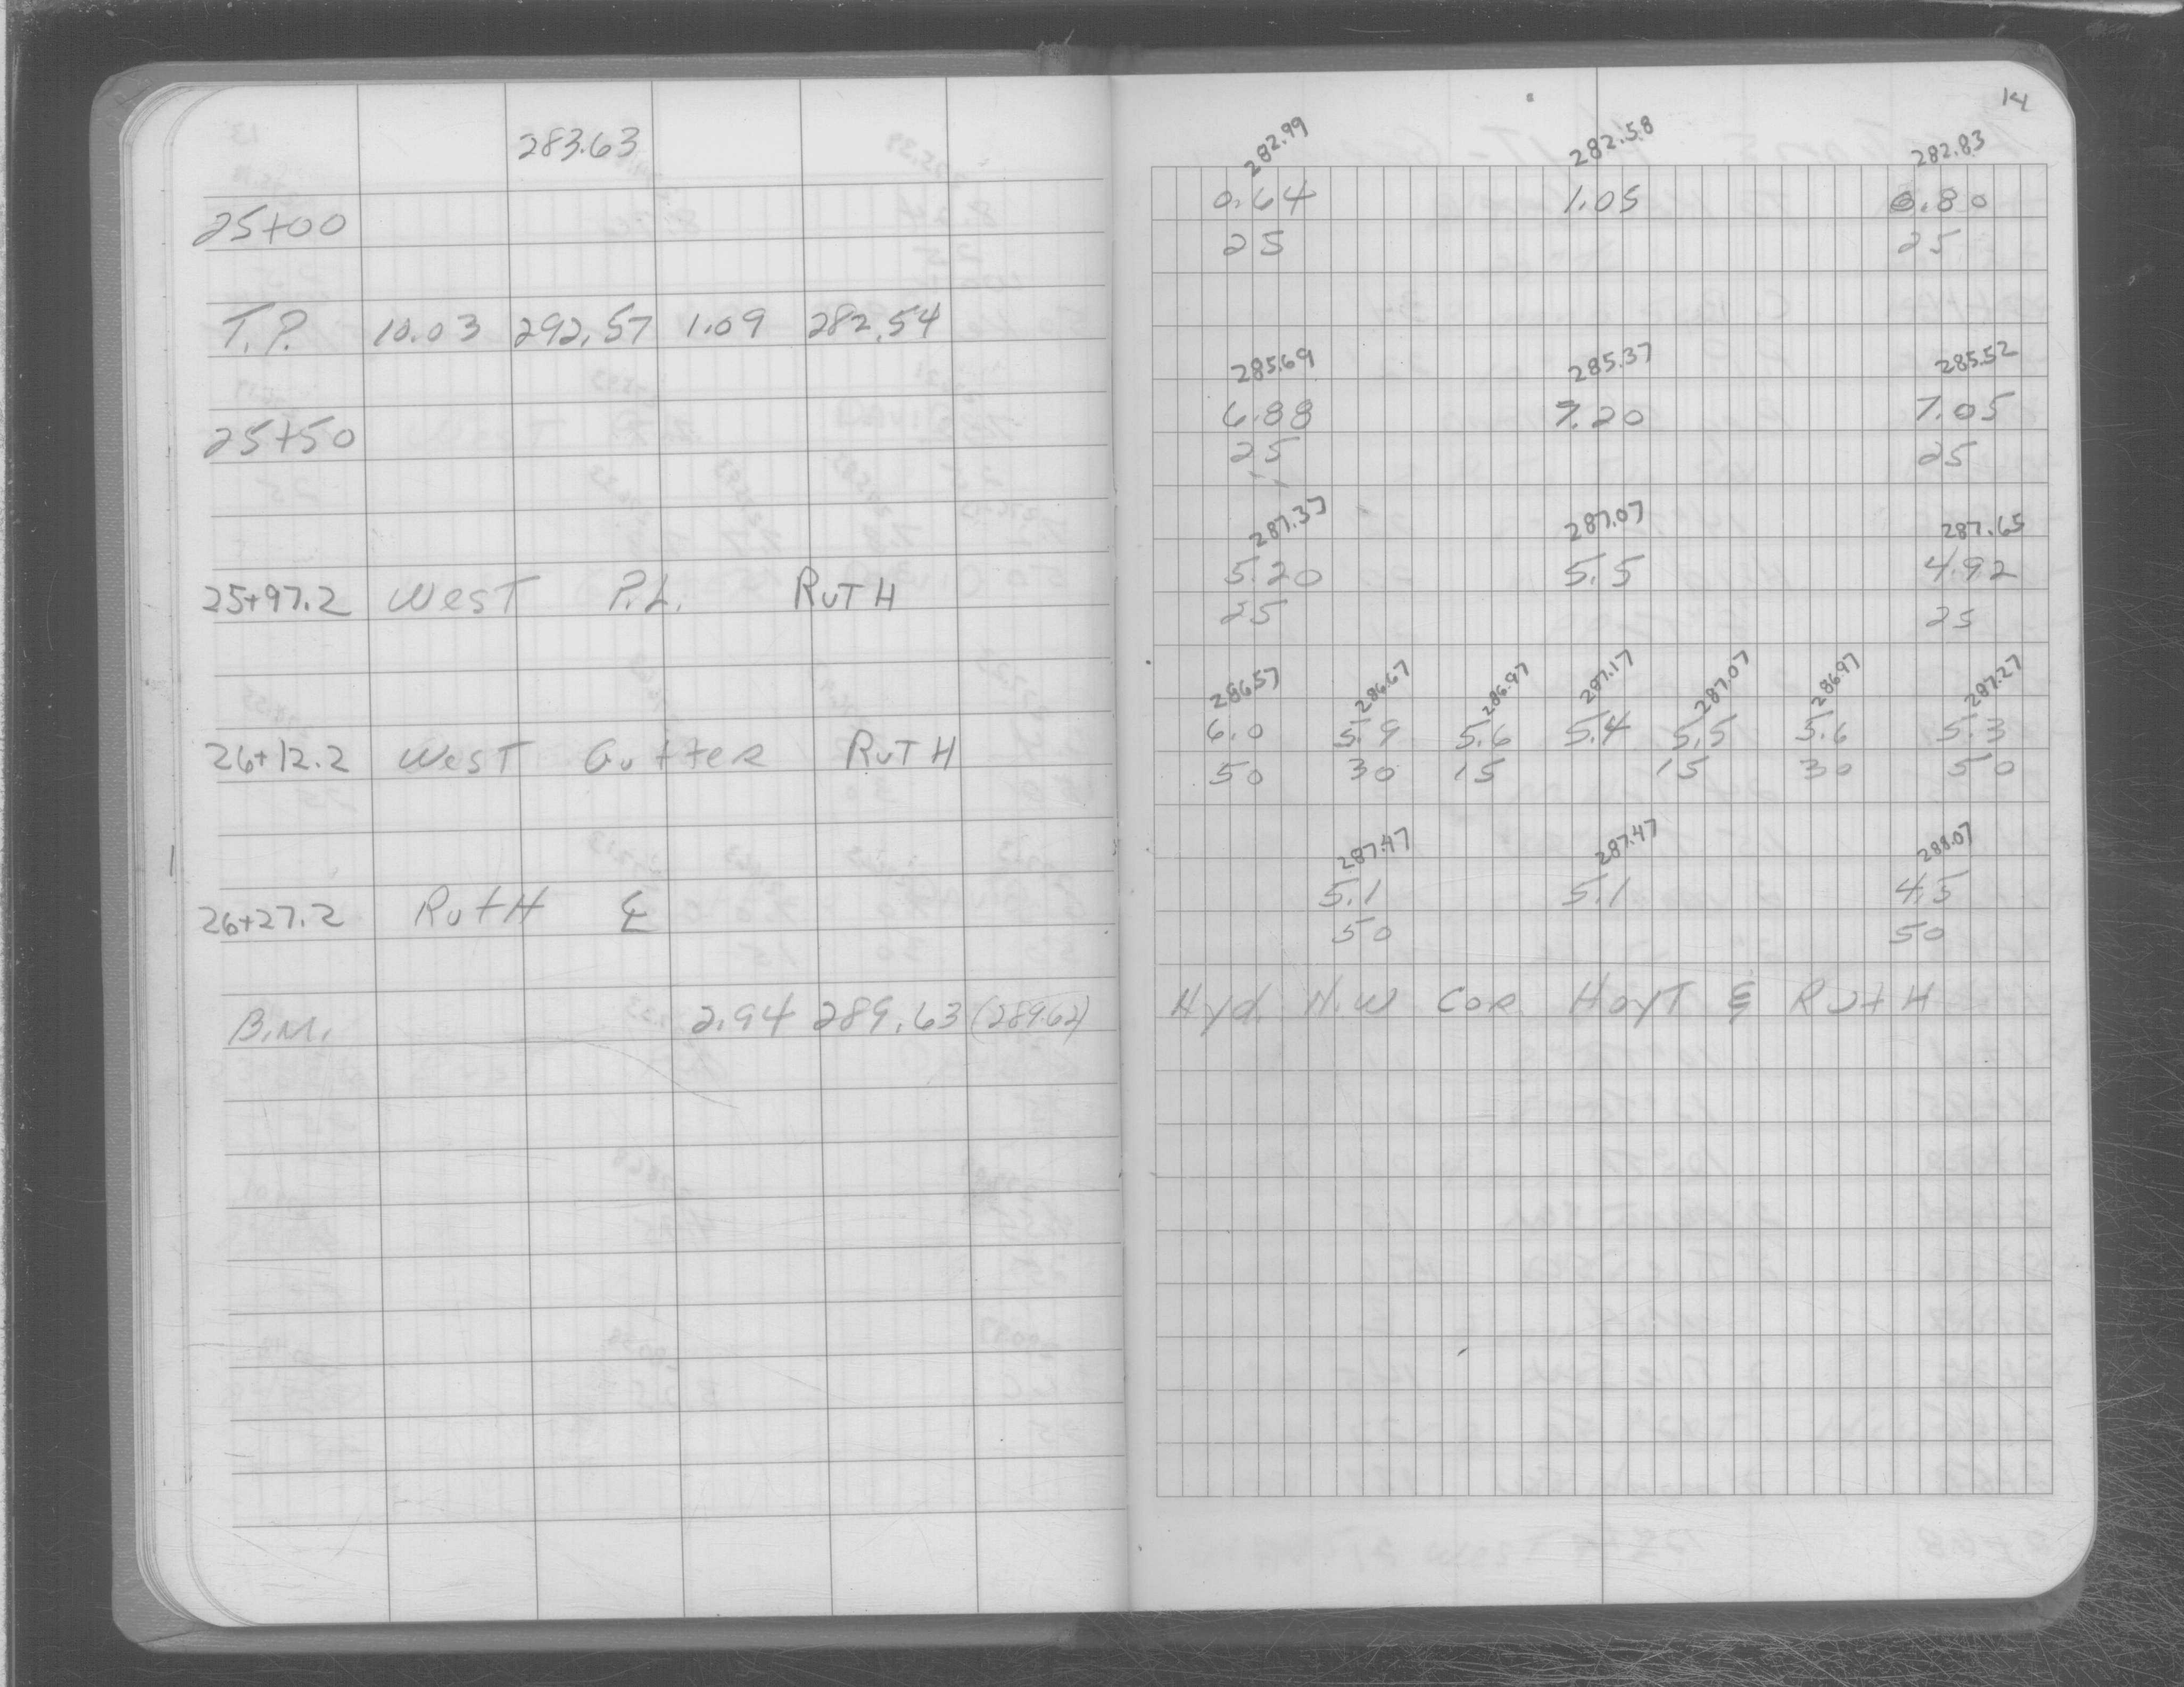 283.63
25+00
T.P. 10.03 292.57 1.09 282.54
25+50
25+97.2 West P.L. RUTH
26+12.2 West Gutter RUTH
26+27.2 RutH ℄
B.M. 2.94 289.63 (289.62)
14
282.99 282.58 282.83
0.64 1.05 0.80
25 25
285.69 285.37 285.52
6.88 7.20 7.05
25 25
287.37 287.07 287.65
5.20 5.5 4.92
25 25
286.57 286.67 286.97 287.17 287.07 286.97 287.27
6.0 5.9 5.6 5.4 5.5 5.6 5.3
50 30 15 15 30 50
287.47 287.47 288.07
5.1 5.1 4.5
50 50
Hyd. N.W COR HoyT & RutH